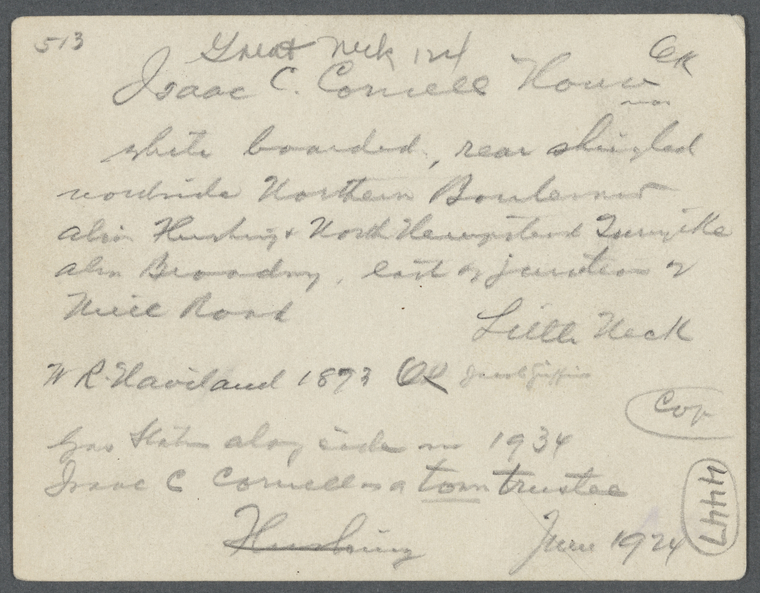 513
Great Neck 124
OK
Isaac C. Cornell House
white boarded, rear shingled
northside Northern Boulevard
also Flushing & North Hempstead Turnpike
also Broadway, east of junction of
Mill Road
Little Neck
W R. Haviland 1873 OK Jacob Griffin
Cop
Gas Station along side in 1934
Isaac C Cornell a town trustee
Flushing June 1924
4447